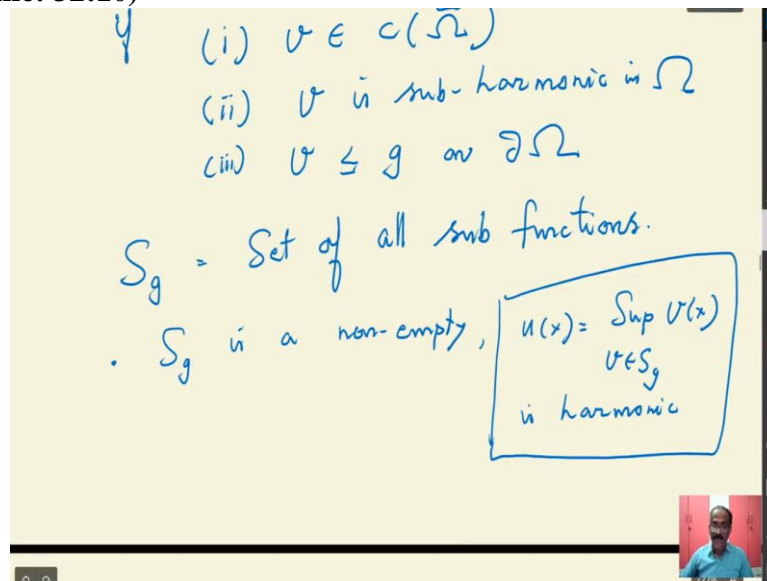 if (i) v ∈ C(Ω̄)
(ii) v is sub-harmonic in Ω
(iii) v ≤ g on ∂Ω
S_g = Set of all sub functions.
. S_g is a non-empty, u(x) = Sup v(x)
v∈S_g
is harmonic